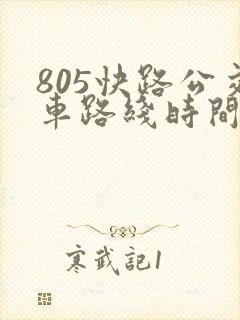 805快路公交
車路綫時間
寒武記1